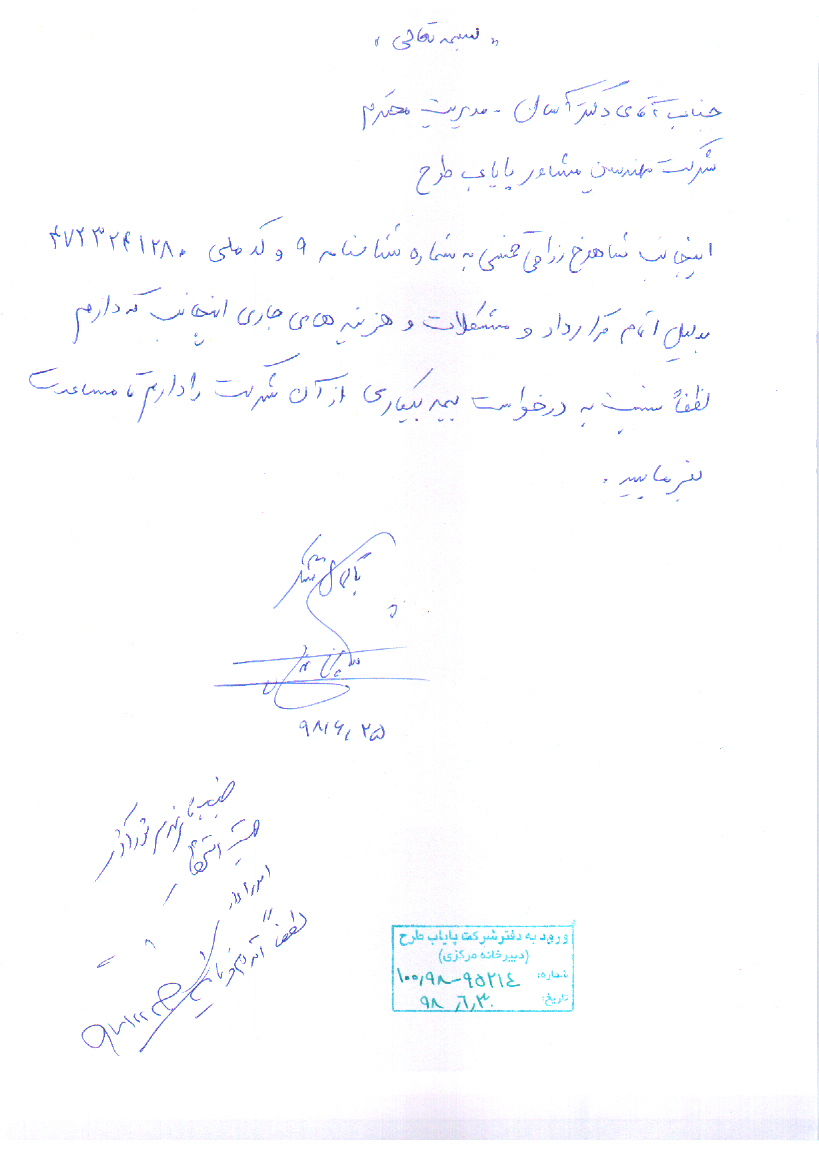 «بسمه تعالی»
جناب آقای دکتر آسال - مدیریت محترم
شرکت مهندسین مشاور پایاب طرح
اینجانب شاهرخ به شماره شناسنامه ۹ و کد ملی ۴۷۲۳۲۴۱۲۸۰
بدلیل اتمام قرارداد و مشکلات و هزینه های جاری اینجانب که دارم
لطفاً نسبت به درخواست بیمه بیکاری از آن شرکت را دارم تا مساعدت
بفرمایید.
با تشکر
۹۸/۶/۲۵
امور اداری
لطفاً اقدام فرمایید
ورود به دفتر شرکت پایاب طرح
(دبیرخانه مرکزی)
شماره: ۱۰۰/۹۸-۹۵۲۱٤
تاریخ: ۹۸/٦/۳۰